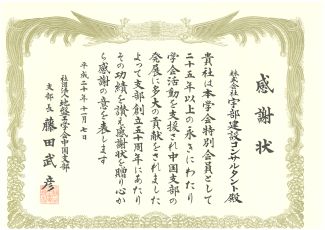 感謝状
株式会社宇部建設コンサルタント殿
貴社は本学会特別会員として
二十五年以上の永きにわたり
学会活動を支援され中国支部の
発展に多大の貢献をされました
よって支部創立五十周年にあたり
その功績を讃え感謝状を贈り心か
ら感謝の意を表します
平成二十年十一月七日
社団法人地盤工学会中国支部
支部長 藤田武彦